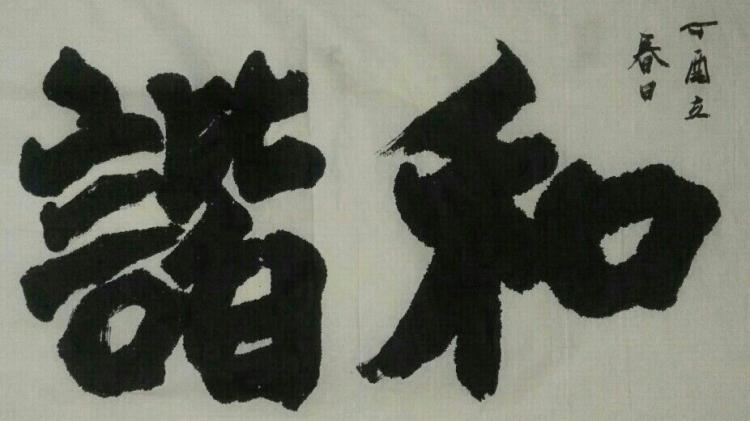 和諧
丁酉立
春日